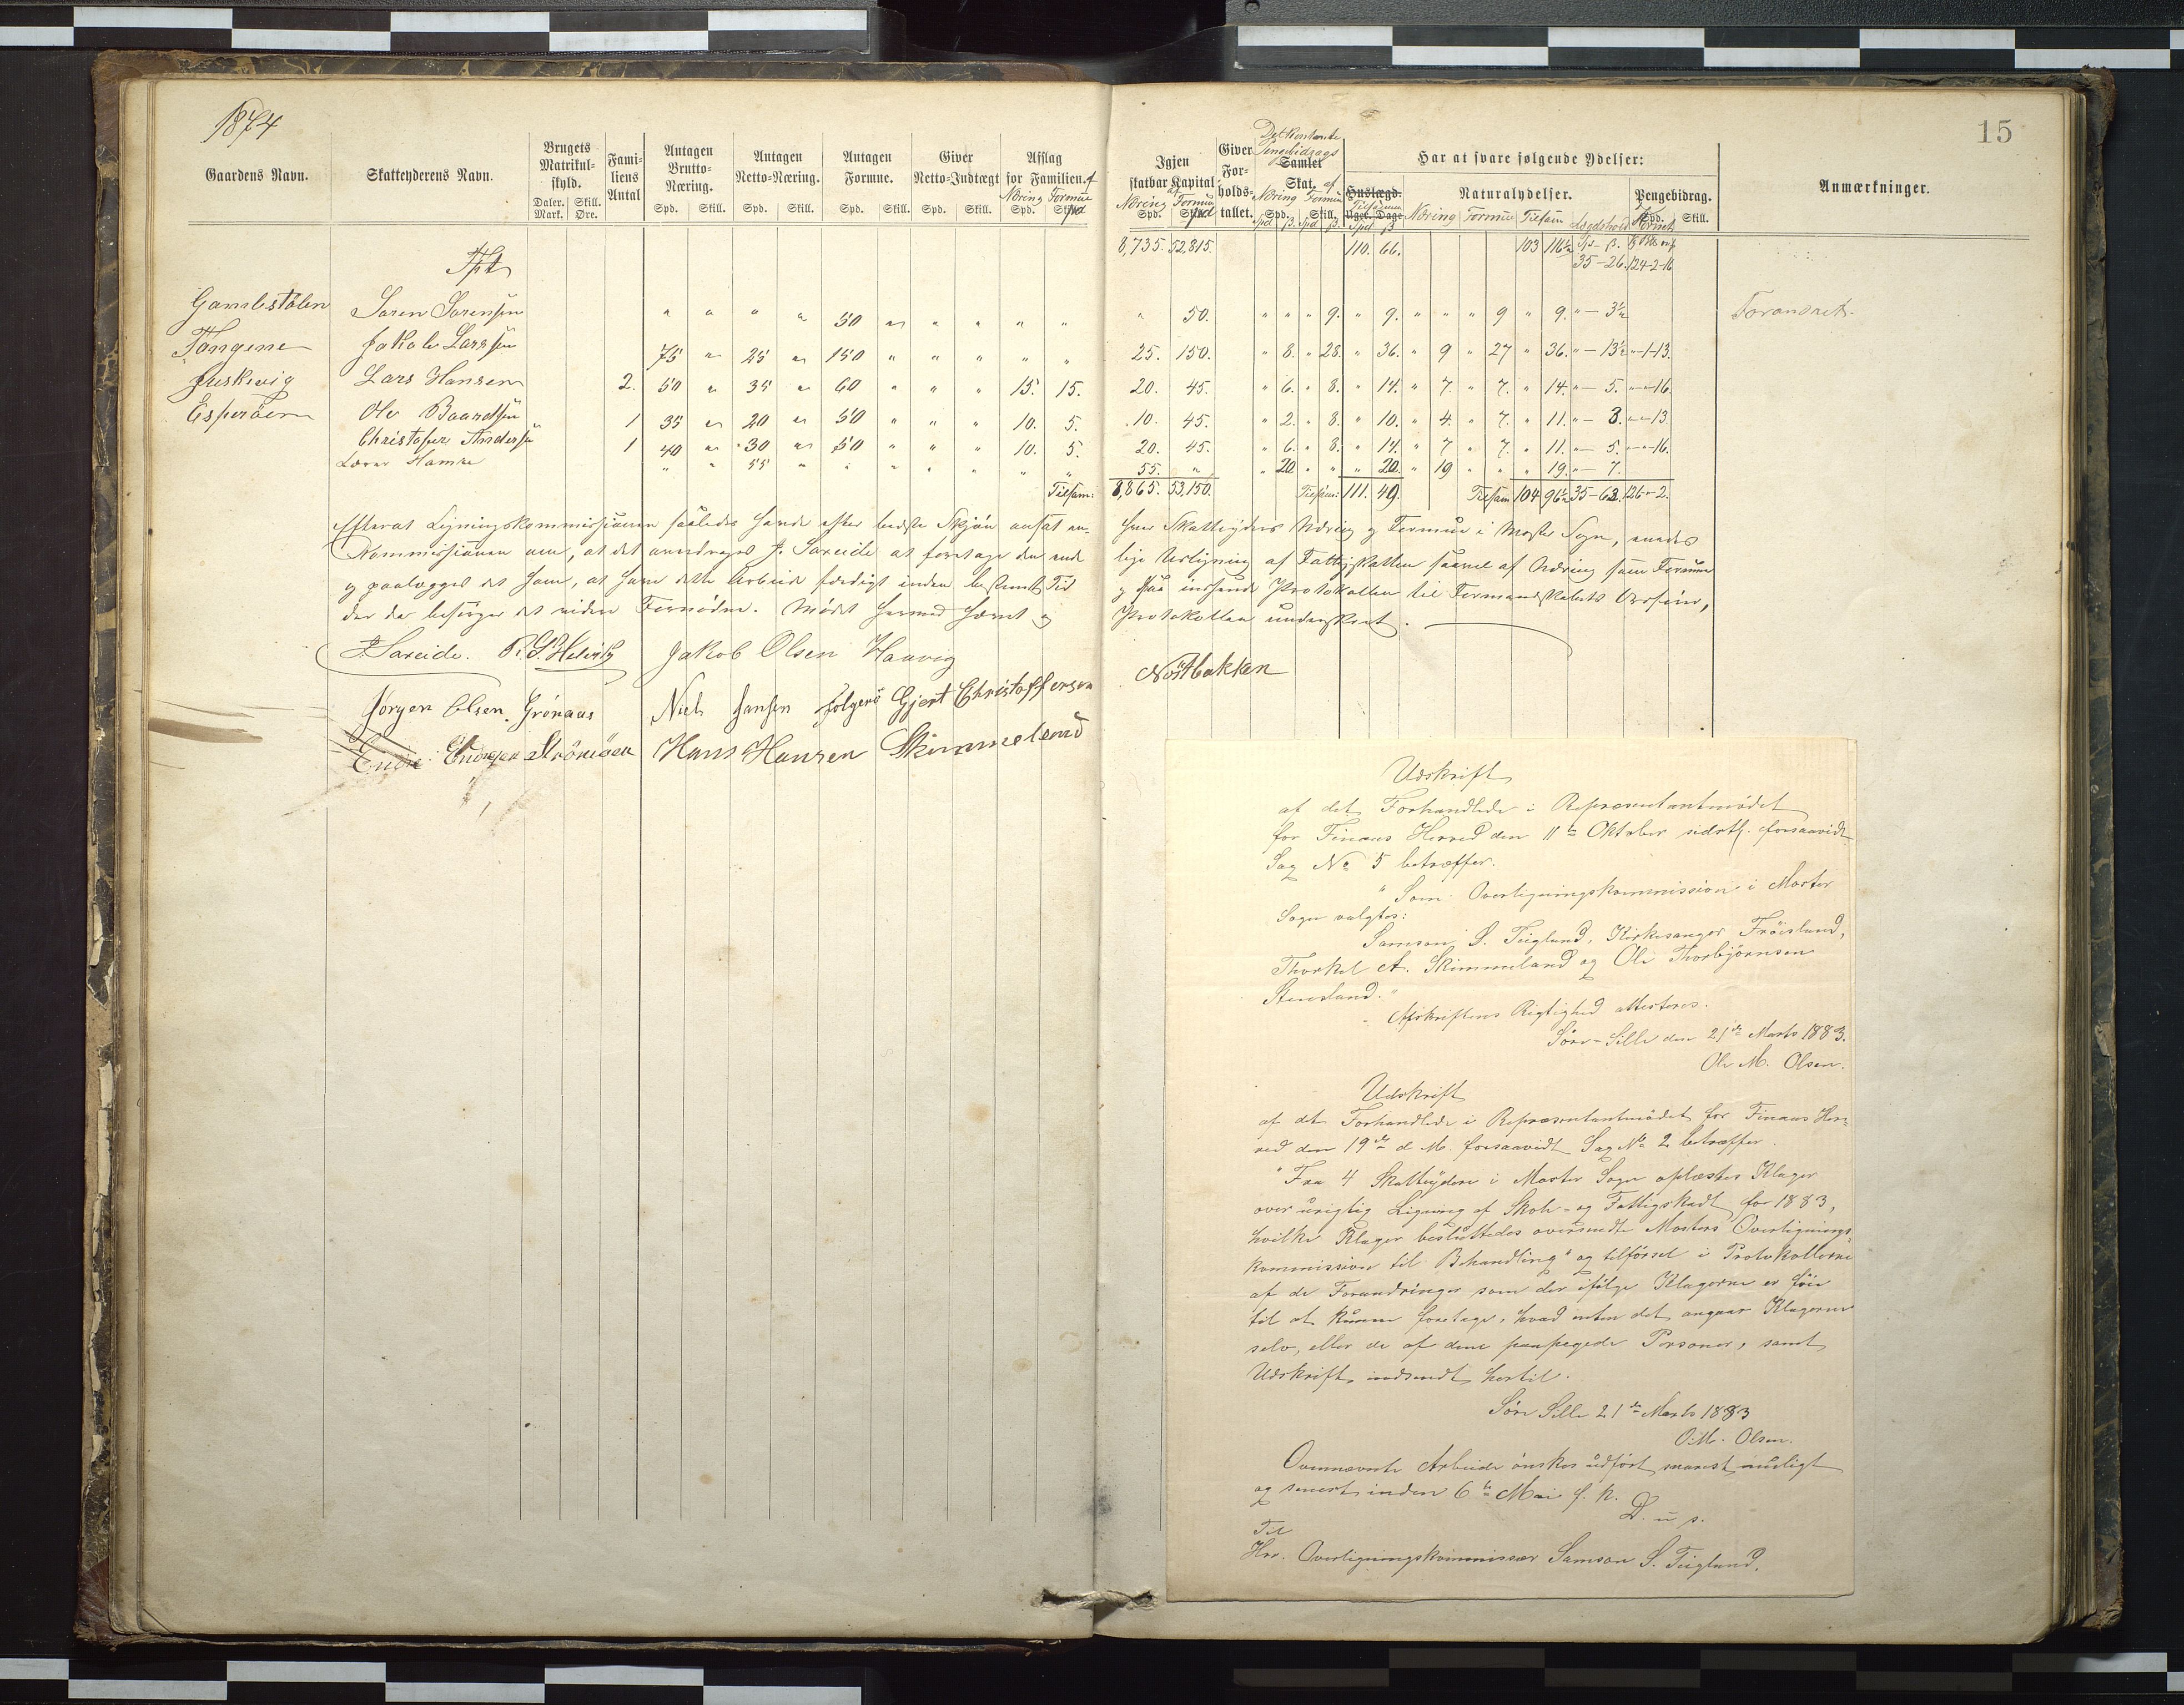 1874
15
Gaardens Navn. Skatteyderens Navn. Brugets Matrikulskyld. Daler. Skill. Mark. Øre. Familiens Antal Antagen Brutto-Næring. Spd. Skill. Antagen Netto-Næring. Spd. Skill. Antagen Formue. Spd. Skill. Giver Netto-Indtægt Spd. Skill. Afslag for Familien. af Næring Formue Spd. Spd
Igjen skatbar Kapital af Næring Formue Spd. Spd Giver Forholdstallet. Det kontante Pengebidrags Samlet Skat. af Næring Formue Spd. Skill. Spd ß Spd ß Har at svare følgende Ydelser: Huslægd. Ugeb. Dage Tilsammen Spd ß Naturalydelser. Næring Formue Tilsam Lægdshold Pengebidrag. Spd. Skill. Anmærkninger.
Tpt 8,735. 52,815. 110. 66. 103 116½ 35-26. 124-2-16
Gamlestølen Søren Sørensen " " " " 50 " " " " " " 50. " " " 9. " 9. " " " 9 " 9. "-3½ Foransaet.
Tøngene Jakob Larssen 75 " 25 " 150 " " " " " 25. 150. " 8. " 28. " 36. " 9 " 27 " 36. "-13½ "-1-13.
Friskevig Lars Hansen 2. 50 " 35 " 60 " " " 15. 15. 20. 45. " 6. " 8. " 14. " 7. " 7. " 14. "-5. "-"-16.
Esperøen Ole Baardsen 1 35 " 20 " 50 " " " 10. 5. 10. 45. " 2. " 8. " 10. " 4. " 7. " 11. "-3. "-"-13.
Christofer Andersen 1 40 " 30 " 50 " " " 10. 5. 20. 45. " 6. " 8. " 14. " 7 " 7. " 11. "-5. "-"-16.
Lærer Hamre " " 55 " " " " " " " 55. " " 20 " " " 20. " 19 " " " 19. "-7.
Tilsam: 8,865. 53,150. Tilsam: 111. 49. Tilsam 104 96½ 35-62. 126-"-2.
Efterat Ligningskommissionen saaledes havde efter bedste Skjøn ansat enhver Skatteyders Næring og Formue i Moster Sogn, enedes
Kommissionen om, at det overdroges J. Sareide at foretage den endelige Udligning af Fattigskatten saavel af Næring som Formue
og paalægges det ham, at have dette Arbeide færdigt inden bestemt Tid og saa indsende Protokollen til Formandskabets Ordfører,
der da besørger det videre Fornødne. Mødet hermed hævet og Protokollen underskrevet.
J. Sareide. R. S. Helvik Jakob Olsen Haavig Nøstbakken
Jørgen Olsen Grønaas Niels Jansen Folgerø Gjert Christoffersen
Endre Endresen Strømøen Hans Hansen Skimmeland
Udskrift
af det Forhandlede i Repræsentantmødet
for Finaas Herred den 11te Oktober sidstl. forsaavidt
Sag No 5 betræffer.
"Som Overligningskommission i Moster
Sogn valgtes:
Samson S. Teigland, Kirkesanger Frøisland,
Thorkel A. Skimmeland og Ole Thorbjørnsen
Stensland."
Afskriftens Rigtighed attesteres.
Søre-Lille den 21de Marts 1883.
Ole M. Olsen.
Udskrift
af det Forhandlede i Repræsentantmødet for Finaas Her-
red den 19de d. M. forsaavidt Sag No 2 betræffer.
"Fra 4 Skatteydere i Moster Sogn oplæstes Klager
over urigtig Ligning af Skole- og Fattigskat for 1883,
hvilke Klager besluttedes oversendte Mosters Overlignings-
kommission til Behandling" og tilførsel i Protokollerne
af de Forandringer som der ifølge Klagerne er føie
til at kunne foretage, hvad enten det angaar Klagerne
selv, eller de af dem paapegede Personer, samt
Udskrift indsendt hertil.
Søre Lille 21de Marts 1883
O. M. Olsen.
Ovennævnte Arbeide ønskes udført snarest muligt
og senest inden 6te Mai f. k.
D. u s.
Til
Hrr. Overligningskommissær Samson S. Teigland.